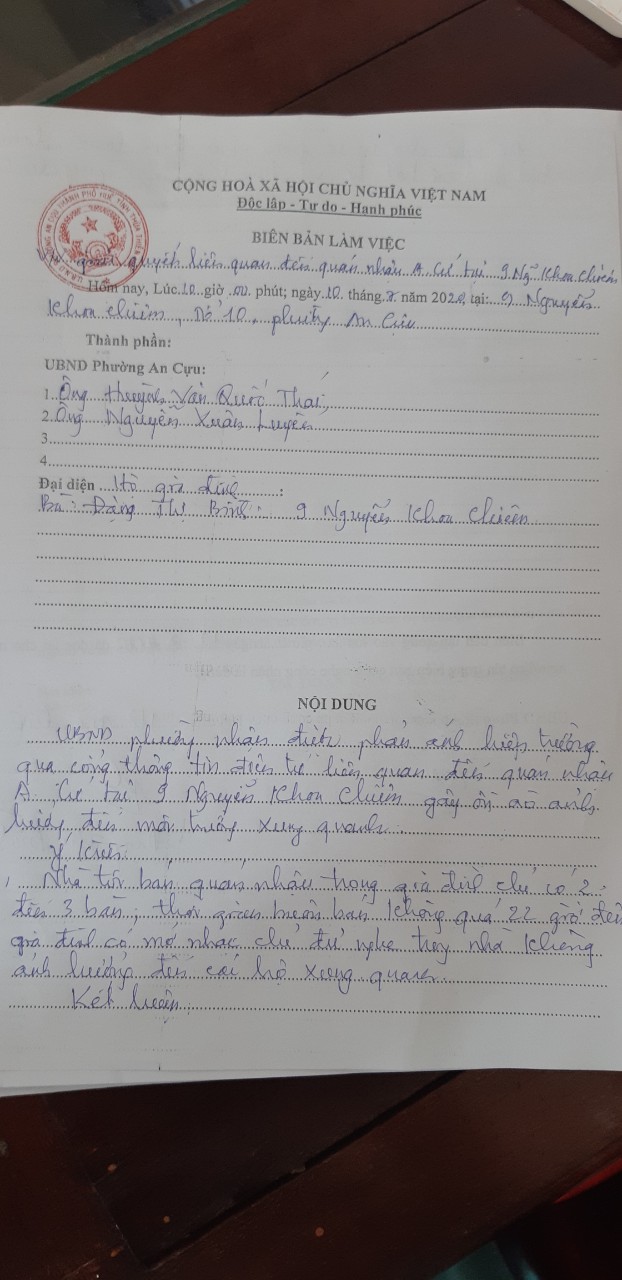 CỘNG HOÀ XÃ HỘI CHỦ NGHĨA VIỆT NAM
Độc lập - Tự do - Hạnh phúc
BIÊN BẢN LÀM VIỆC
V/v giải quyết liên quan đến quán nhậu A Cư tại 9 Ng~ Khoa Chiêm
Hôm nay, Lúc 10 giờ 00 phút; ngày 10 tháng 8 năm 2020, tại: 9 Nguyễn
Khoa Chiêm, Tổ 10, phường An Cựu
Thành phần:
UBND Phường An Cựu:
1. Ông Huỳnh Văn Quốc Thái
2. Ông Nguyễn Xuân Luyện
3
4
Đại diện Hộ gia đình :
Bà: Đặng Thị Bình: 9 Nguyễn Khoa Chiêm
NỘI DUNG
UBND phường nhận được phản ánh hiện trường
qua cổng thông tin điện tử liên quan đến quán nhậu
A Cư tại 9 Nguyễn Khoa Chiêm gây ồn ào ảnh
hưởng đến môi trường xung quanh.
Ý kiến
Nhà tôi bán quán nhậu trong gia đình chỉ có 2
đến 3 bàn, thời gian buôn bán không quá 22 giờ đêm
gia đình có mở nhạc chỉ đủ nghe trong nhà không
ảnh hưởng đến các hộ xung quanh.
Kết luận: